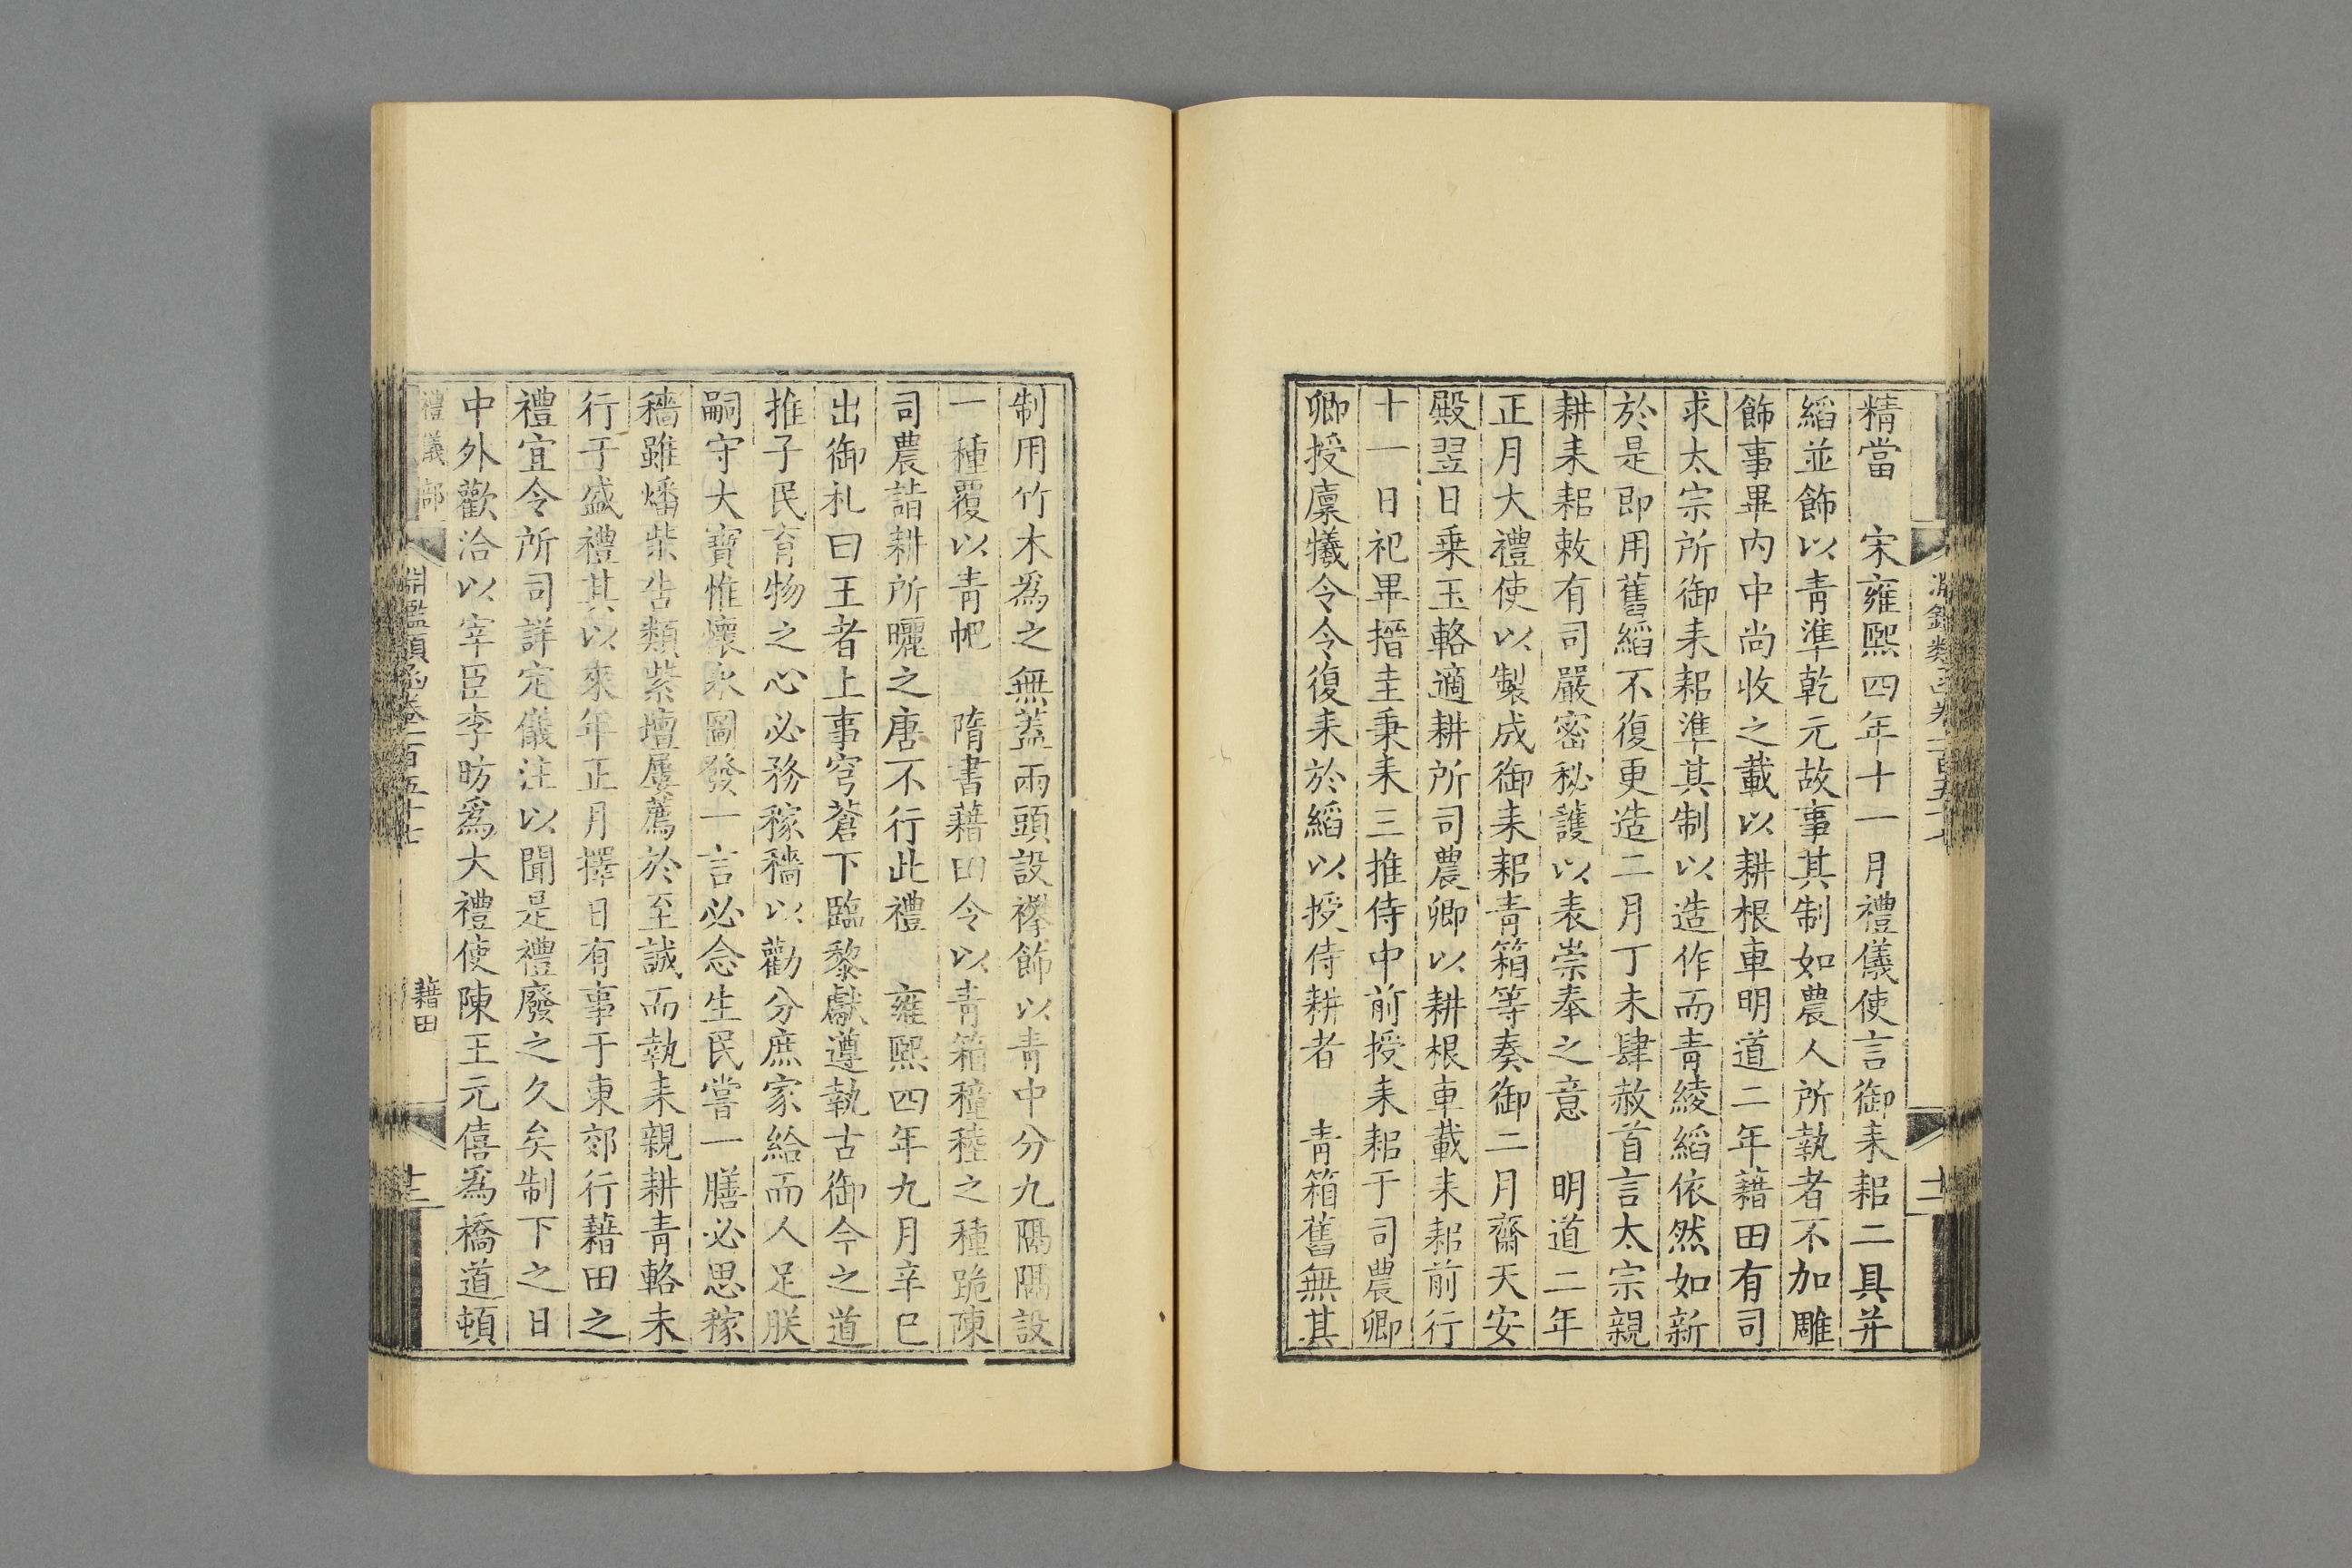 淵鑑類函卷一百五十七
精當　宋雍熙四年十一月禮儀使言御耒耜二具并
縚並飾以青準乾元故事其制如農人所執者不加雕
飾事畢內中尚收之載以耕根車明道二年藉田有司
求太宗所御耒耜準其制以造作而青綾縚依然如新
於是即用舊縚不復更造二月丁未肆赦首言太宗親
耕耒耜敕有司嚴密秘護以表崇奉之意　明道二年
正月大禮使以製成御耒耜青箱等奏御二月齋天安
殿翌日乗玉輅適耕所司農卿以耕根車載耒耜前行
十一日祀畢搢圭秉耒三推侍中前授耒耜于司農卿
卿授廩犧令令復耒於縚以授侍耕者　青箱舊無其
制用竹木爲之無蓋兩頭設襻飾以青中分九隔隔設
一種覆以青帊　隋書藉田令以青箱穜稑之種跪陳
司農詣耕所曬之唐不行此禮　雍熙四年九月辛巳
出御札曰王者上事穹蒼下臨黎獻遵執古御今之道
推子民育物之心必務稼穡以勸分庶家給而人足朕
嗣守大寶惟懷永圖發一言必念生民嘗一膳必思稼
穡雖燔柴告類紫壇屢薦於至誠而執耒親耕青輅未
行于盛禮其以來年正月擇日有事于東郊行藉田之
禮宜令所司詳定儀注以聞是禮廢之久矣制下之日
中外歡洽以宰臣李昉爲大禮使陳王元僖爲橋道頓
禮儀部
淵鑑類函卷一百五十七
藉田